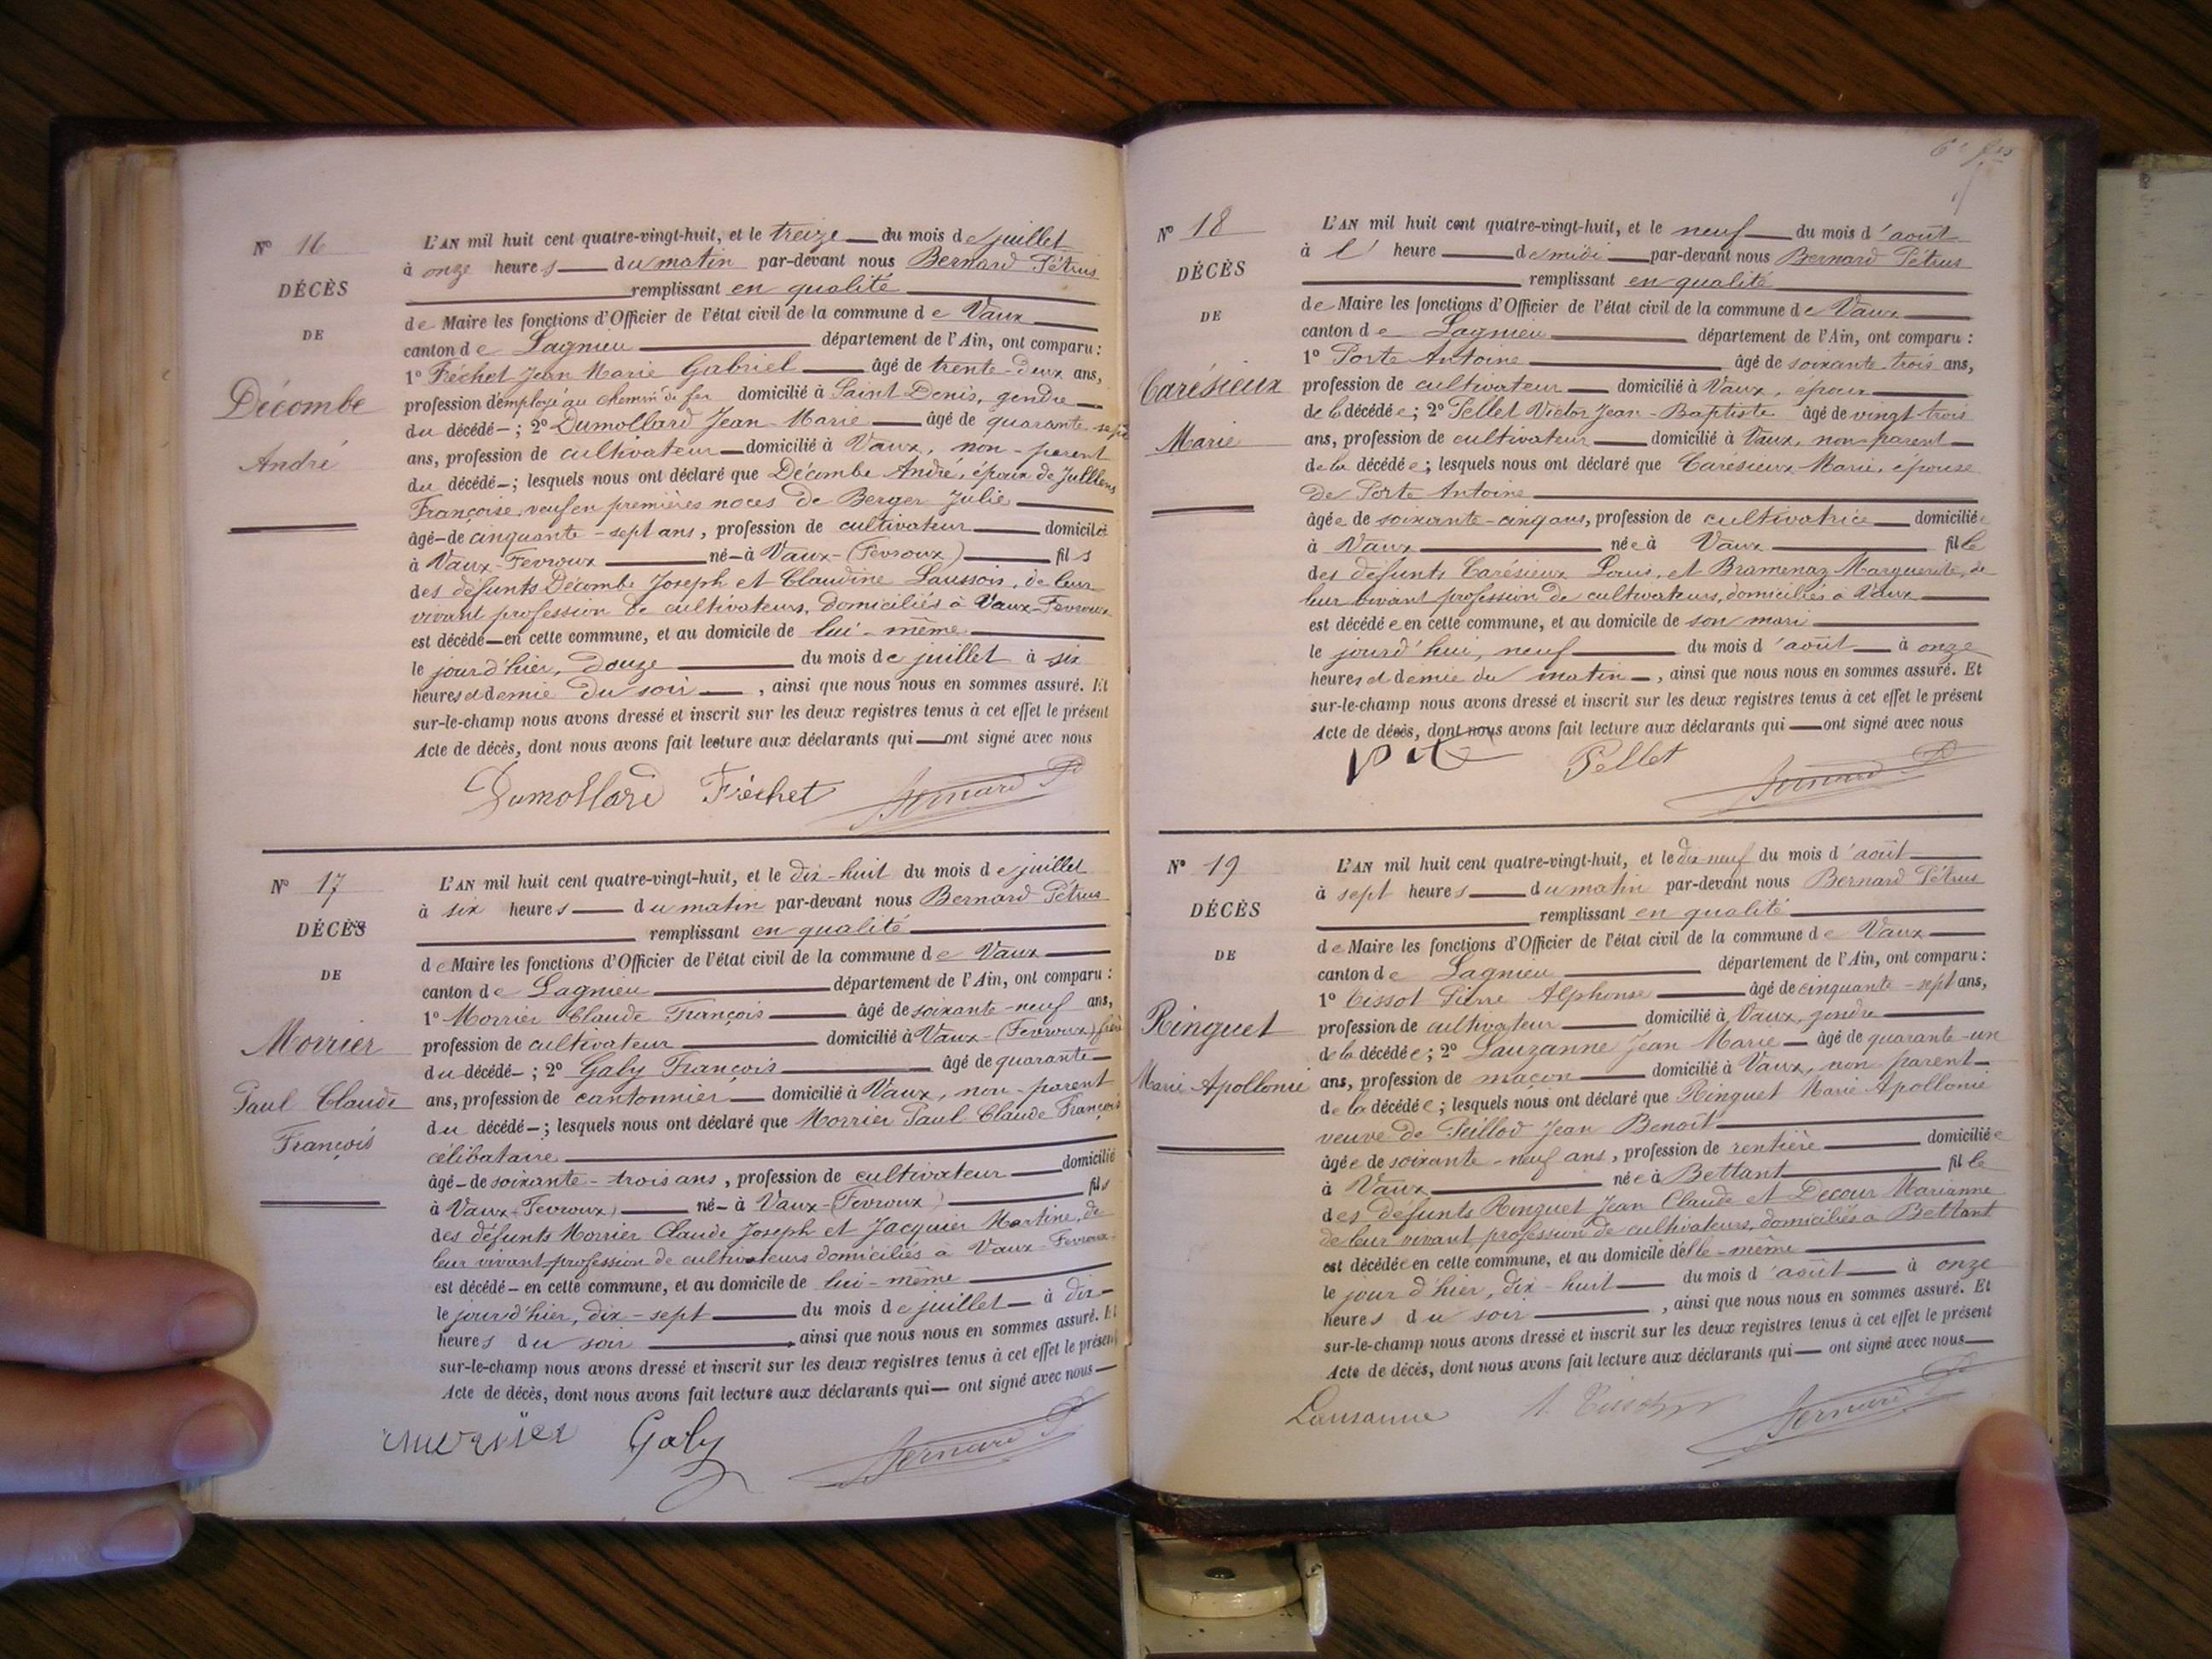 N° 16
DÉCÈS
DE
Décombe
André
L'AN mil huit cent quatre-vingt-huit, et le treize du mois de juillet
à onze heures du matin par-devant nous Bernard Pétrus
remplissant en qualité
de Maire les fonctions d'Officier de l'état civil de la commune de Vaux
canton de Lagnieu département de l'Ain, ont comparu :
1° Fréchet Jean Marie Gabriel âgé de trente-deux ans,
profession d'employé au chemin de fer domicilié à Saint Denis, gendre
du décédé ; 2° Dumollard Jean-Marie âgé de quarante sept
ans, profession de cultivateur domicilié à Vaux, non-parent
du décédé ; lesquels nous ont déclaré que Décombe André, époux de Julliens
Françoise, veuf en premières noces de Berger Julie
âgé de cinquante-sept ans, profession de cultivateur domicilié
à Vaux-Fevroux né à Vaux-(Fevroux) fils
des défunts Décombe Joseph et Claudine Laussois, de leur
vivant profession de cultivateurs, domiciliés à Vaux-Fevroux
est décédé en cette commune, et au domicile de lui-même
le jourd'hier, douze du mois de juillet à six
heures et demie du soir, ainsi que nous nous en sommes assuré. Et
sur-le-champ nous avons dressé et inscrit sur les deux registres tenus à cet effet le présent
Acte de décès, dont nous avons fait lecture aux déclarants qui ont signé avec nous
Dumollard Fréchet Bernard P
N° 17
DÉCÈS
DE
Morrier
Paul Claude
François
L'AN mil huit cent quatre-vingt-huit, et le dix-huit du mois de juillet
à six heures du matin par-devant nous Bernard Pétrus
remplissant en qualité
de Maire les fonctions d'Officier de l'état civil de la commune de Vaux
canton de Lagnieu département de l'Ain, ont comparu :
1° Morrier Claude François âgé de soixante-neuf ans,
profession de cultivateur domicilié à Vaux-(Fevroux) frère
du décédé ; 2° Galy François âgé de quarante
ans, profession de cantonnier domicilié à Vaux, non-parent
du décédé ; lesquels nous ont déclaré que Morrier Paul Claude François
célibataire
âgé de soixante-trois ans, profession de cultivateur domicilié
à Vaux-(Fevroux) né à Vaux-(Fevroux) fils
des défunts Morrier Claude Joseph et Jacquier Martine, de
leur vivant profession de cultivateurs domiciliés à Vaux-Fevroux
est décédé en cette commune, et au domicile de lui-même
le jourd'hier, dix-sept du mois de juillet à dix
heures du soir, ainsi que nous nous en sommes assuré. Et
sur-le-champ nous avons dressé et inscrit sur les deux registres tenus à cet effet le présent
Acte de décès, dont nous avons fait lecture aux déclarants qui ont signé avec nous
Galy Bernard P
N° 18
DÉCÈS
DE
Carésieux
Marie
L'AN mil huit cent quatre-vingt-huit, et le neuf du mois d'août
à l'heure de midi par-devant nous Bernard Pétrus
remplissant en qualité
de Maire les fonctions d'Officier de l'état civil de la commune de Vaux
canton de Lagnieu département de l'Ain, ont comparu :
1° Porte Antoine âgé de soixante-trois ans,
profession de cultivateur domicilié à Vaux, époux
de la décédée ; 2° Pellet Victor Jean-Baptiste âgé de vingt-trois
ans, profession de cultivateur domicilié à Vaux, non-parent
de la décédée ; lesquels nous ont déclaré que Carésieux Marie, épouse
de Porte Antoine
âgée de soixante-cinq ans, profession de cultivatrice domiciliée
à Vaux née à Vaux fille
des défunts Carésieux Louis, et Bramenaz Marguerite, de
leur vivant profession de cultivateurs, domiciliés à Vaux
est décédée en cette commune, et au domicile de son mari
le jourd'hui, neuf du mois d'août à onze
heures et demie du matin, ainsi que nous nous en sommes assuré. Et
sur-le-champ nous avons dressé et inscrit sur les deux registres tenus à cet effet le présent
Acte de décès, dont nous avons fait lecture aux déclarants qui ont signé avec nous
Pellet Bernard P
N° 19
DÉCÈS
DE
Ringuet
Marie Apollonie
L'AN mil huit cent quatre-vingt-huit, et le dix-neuf du mois d'août
à sept heures du matin par-devant nous Bernard Pétrus
remplissant en qualité
de Maire les fonctions d'Officier de l'état civil de la commune de Vaux
canton de Lagnieu département de l'Ain, ont comparu :
1° Tissot Pierre Alphonse âgé de cinquante-sept ans,
profession de cultivateur domicilié à Vaux, gendre
de la décédée ; 2° Lauzanne Jean Marie âgé de quarante-un
ans, profession de maçon domicilié à Vaux, non-parent
de la décédée ; lesquels nous ont déclaré que Ringuet Marie Apollonie
veuve de Peillod Jean Benoît
âgée de soixante-neuf ans, profession de rentière domiciliée
à Vaux née à Bettant fille
des défunts Ringuet Jean Claude et Decour Marianne
de leur vivant profession de cultivateurs, domiciliés à Bettant
est décédée en cette commune, et au domicile d'elle-même
le jour d'hier, dix-huit du mois d'août à onze
heures du soir, ainsi que nous nous en sommes assuré. Et
sur-le-champ nous avons dressé et inscrit sur les deux registres tenus à cet effet le présent
Acte de décès, dont nous avons fait lecture aux déclarants qui ont signé avec nous
Lausanne Bernard P